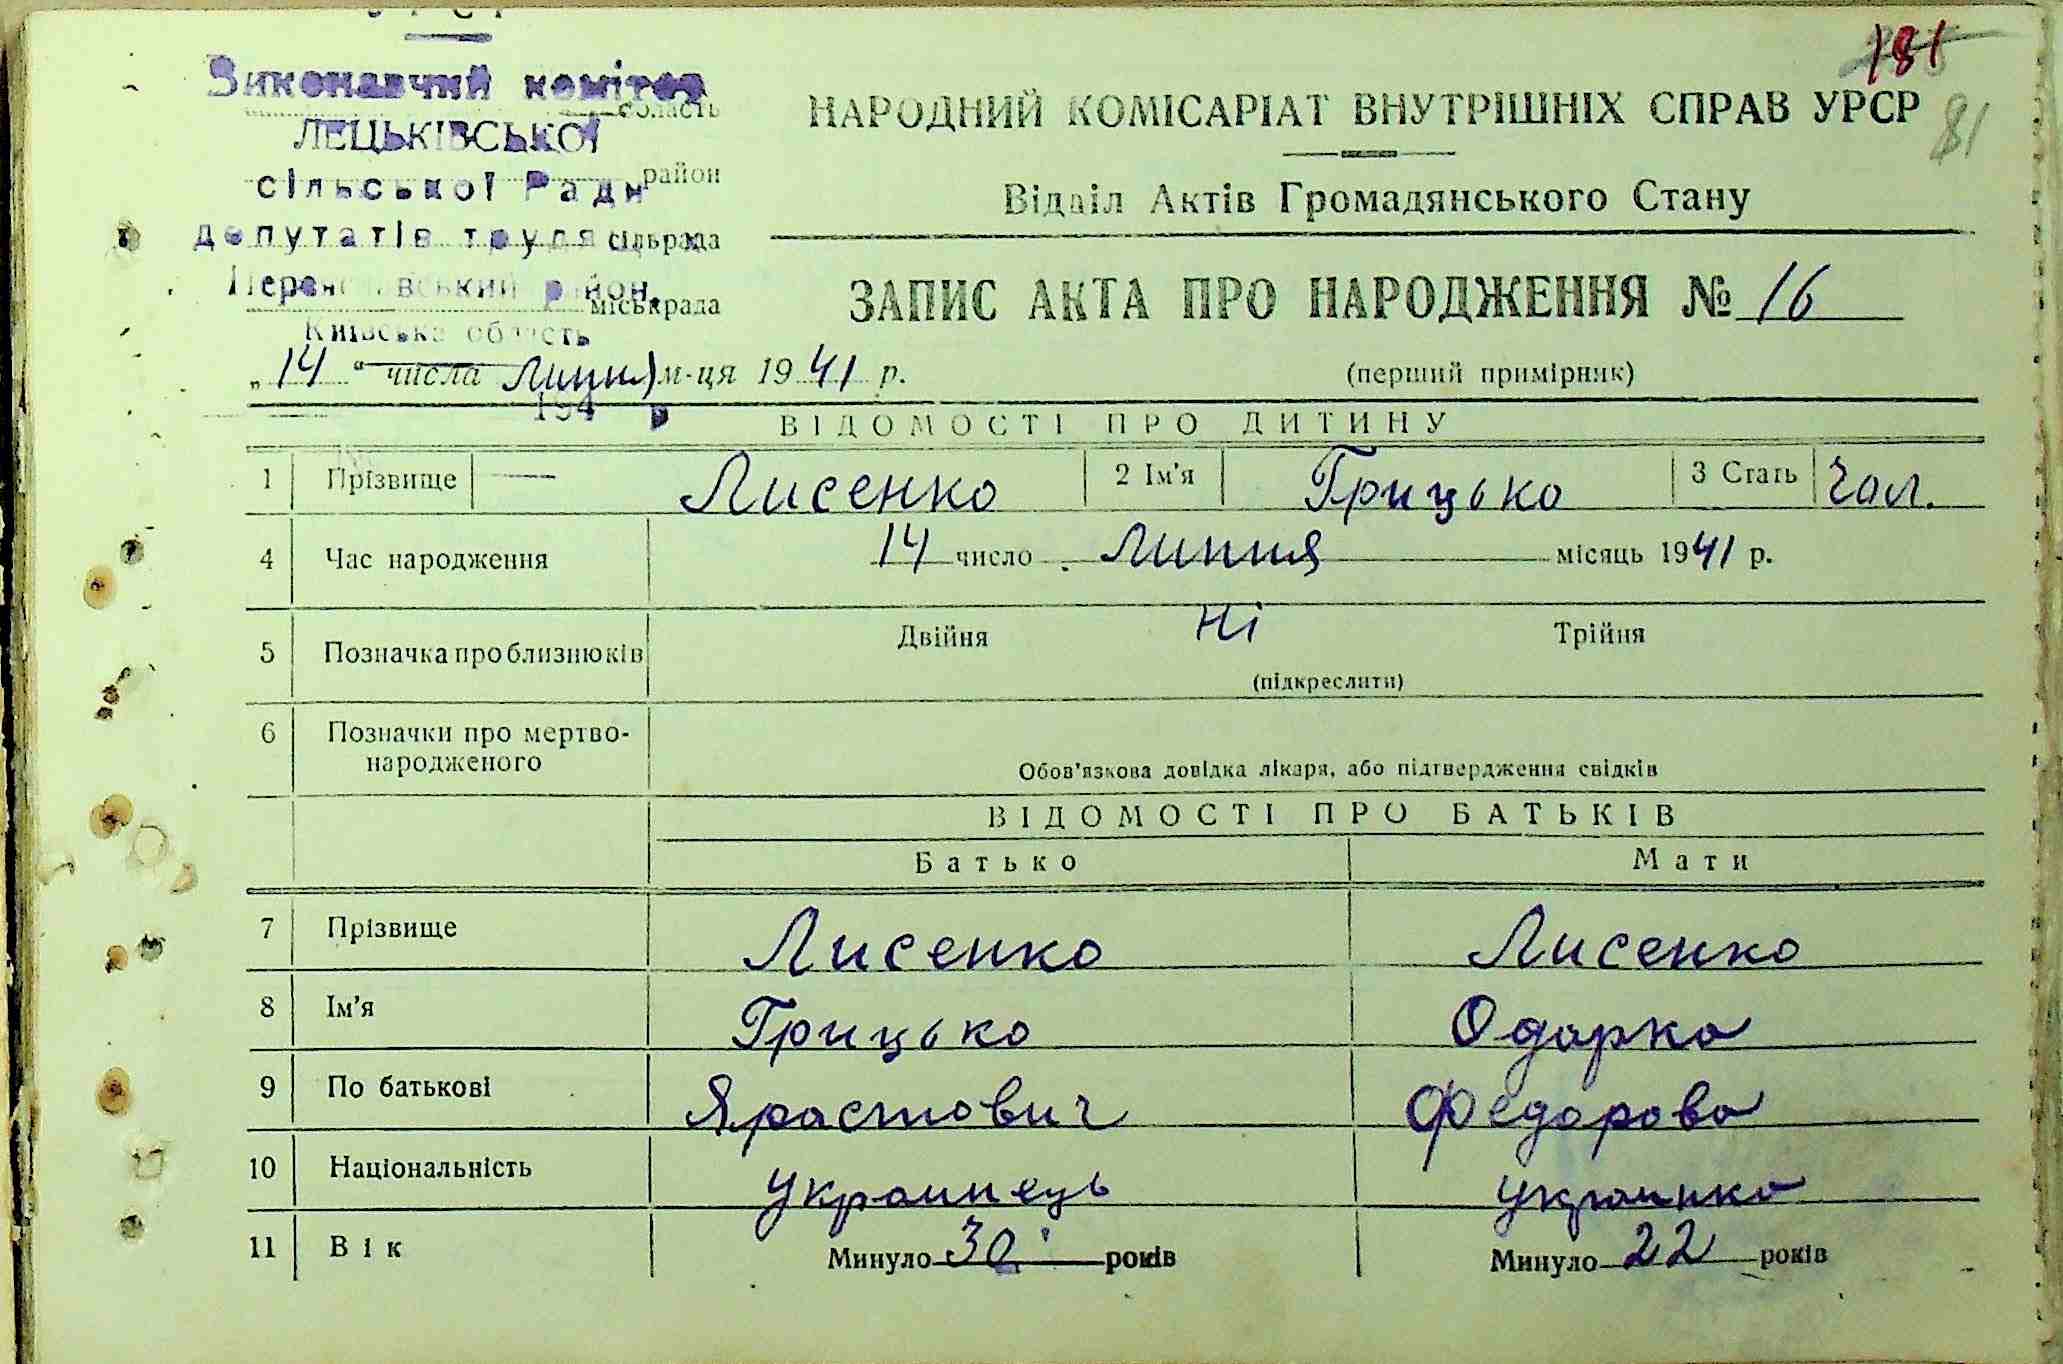 УРСР
181
Виконавчий комітет
область
ЛЕЦЬКІВСЬКОЇ
сільської Ради
район
депутатів трудящих
сільрада
Переяславський район,
міськрада
Київська область
„14“ числа липня м-ця 1941 р.
194 р
НАРОДНИЙ КОМІСАРІАТ ВНУТРІШНІХ СПРАВ УРСР
81
Відділ Актів Громадянського Стану
ЗАПИС АКТА ПРО НАРОДЖЕННЯ № 16
(перший примірник)
ВІДОМОСТІ ПРО ДИТИНУ
1 Прізвище Лисенко 2 Ім'я Грицько 3 Стать Чол.
4 Час народження 14 число липня місяць 1941 р.
5 Позначка про близнюків Двійня Ні Трійня
(підкреслити)
6 Позначки про мертво-
народженого
Обов'язкова довідка лікаря, або підтвердження свідків
ВІДОМОСТІ ПРО БАТЬКІВ
Батько Мати
7 Прізвище Лисенко Лисенко
8 Ім'я Грицько Одарка
9 По батькові Ярастович Федорова
10 Національність Українець українка
11 Вік Минуло 30 років Минуло 22 років